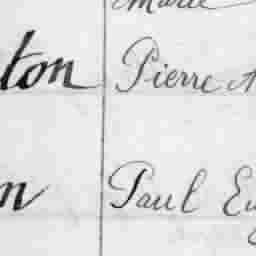 Marie
ton Pierre A
n Paul Eu